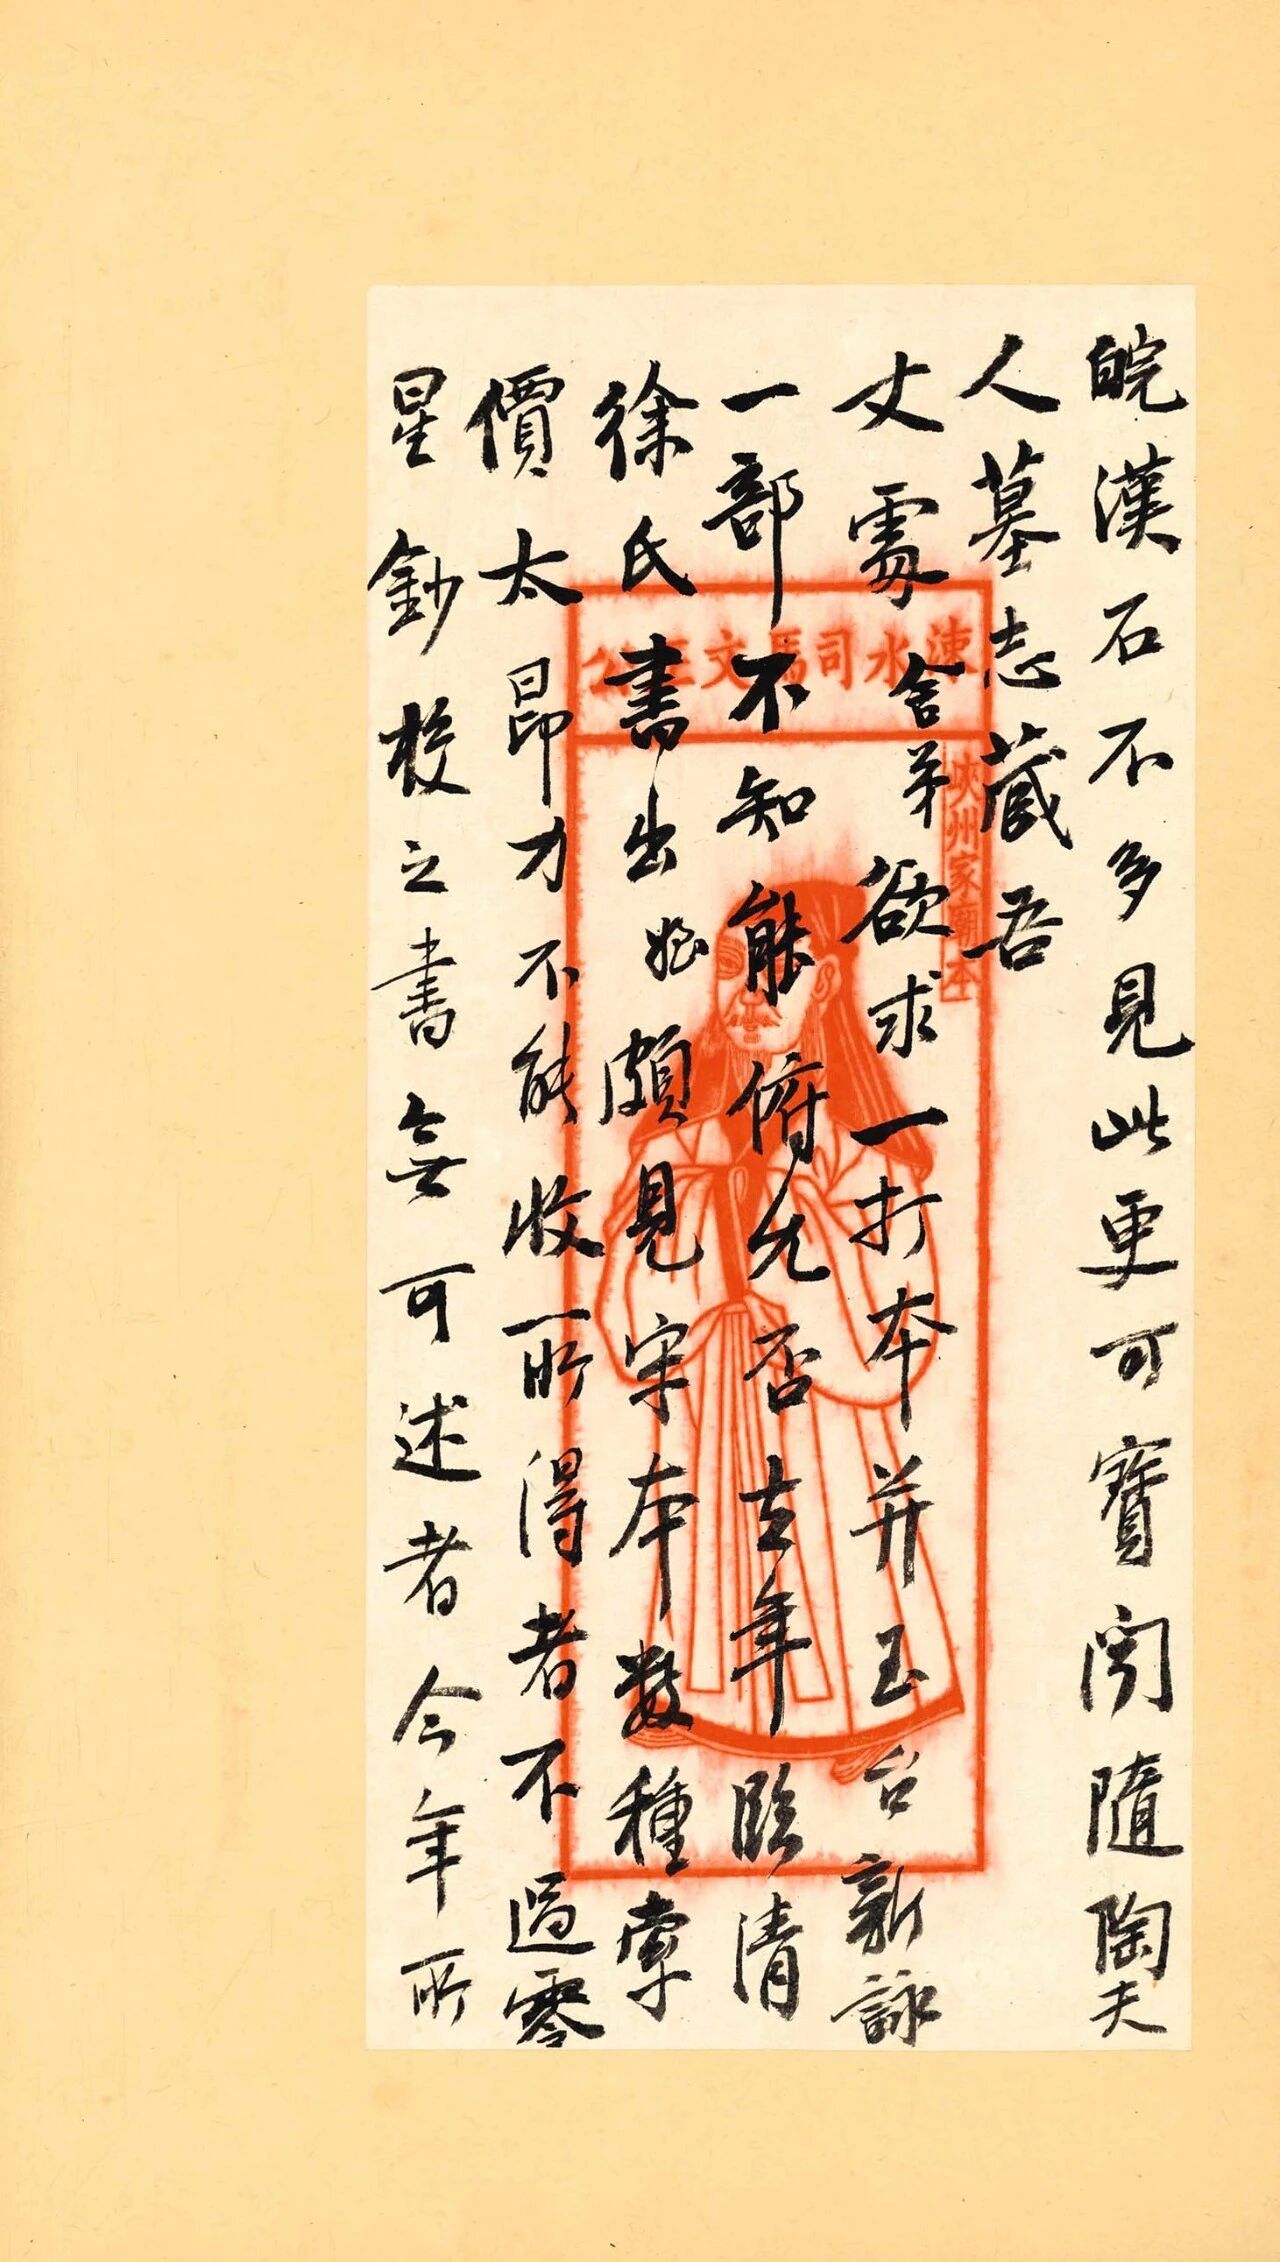 皖漢石不多見此更可寶聞隨陶夫
人墓志藏吾
丈處舍弟欲求一打本并玉台新詠
一部不知能俯允否去年臨清
徐氏書出姪頗見宋本數種索
價太昂力不能收所得者不過零
星鈔校之書無可述者今年所
涑水司馬文正公
峽州家廟本